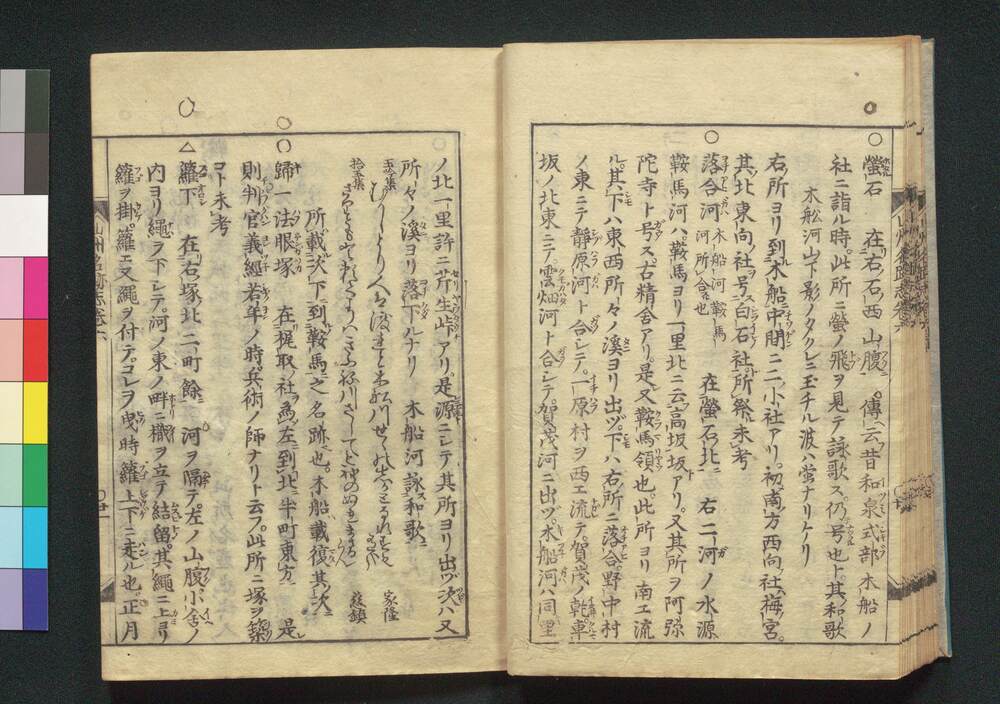 ○螢石 在右石西山腹。傳云昔和泉式部木船ノ
社ニ詣ル時。此所ニ螢ノ飛ヲ見テ詠歌ス。仍号也ト。其和歌
木舩河山下影ノクラクレニ玉チル波ハ螢ナリケリ
右所ヨリ到木船中間ニ二小社アリ。初南方西向社梅宮。
其北東向社号白石社。所祭未考
○落合河 木船河鞍馬河所合也 在螢石北ニ 右二河ノ水源
鞍馬河ハ鞍馬ヨリ一里北ニ云高坂坂アリ。又其所ヲ阿弥
陀寺ト号ス古精舎アリ。是又鞍馬領也。此所ヨリ南エ流
ル。其下ハ東西所々ノ溪ヨリ出ヅ。下ハ右所ニ落合。野中村
ノ東ニテ静原河ト合シテ。一原村ヲ西エ流テ。賀茂ノ乾車
坂ノ北東ニテ雲畑河ト合シテ。賀茂河ニ出ヅ。木船河ハ同里
ノ北一里許ニ芹生峠アリ。是源ニシテ其所ヨリ出ヅ次ハ又
所々ノ溪ヨリ落下ルナリ 木船河詠和歌ニ
玉集 家隆
拾玉集 慈鎮
所載次下到鞍馬之名跡也。木船載復其次ニ
○歸一法眼塚 在梶取社爲左到北半町東方ニ 是
則判官義經若年ノ時。兵術ノ師ナリト云フ。此所ニ塚ヲ築
コト未考
△籮下 在右塚北二町餘ニ 河ヲ隔テ左ノ山腹小舎ノ
内ヨリ繩ヲ下シテ。河ノ東ノ畔ニ橛ヲ立テ結留。其繩ニ上ヨリ
籮ヲ掛。籮エ又繩ヲ付テ。コレヲ曳時籮上下ニ走ル也。正月
山州名跡志巻六